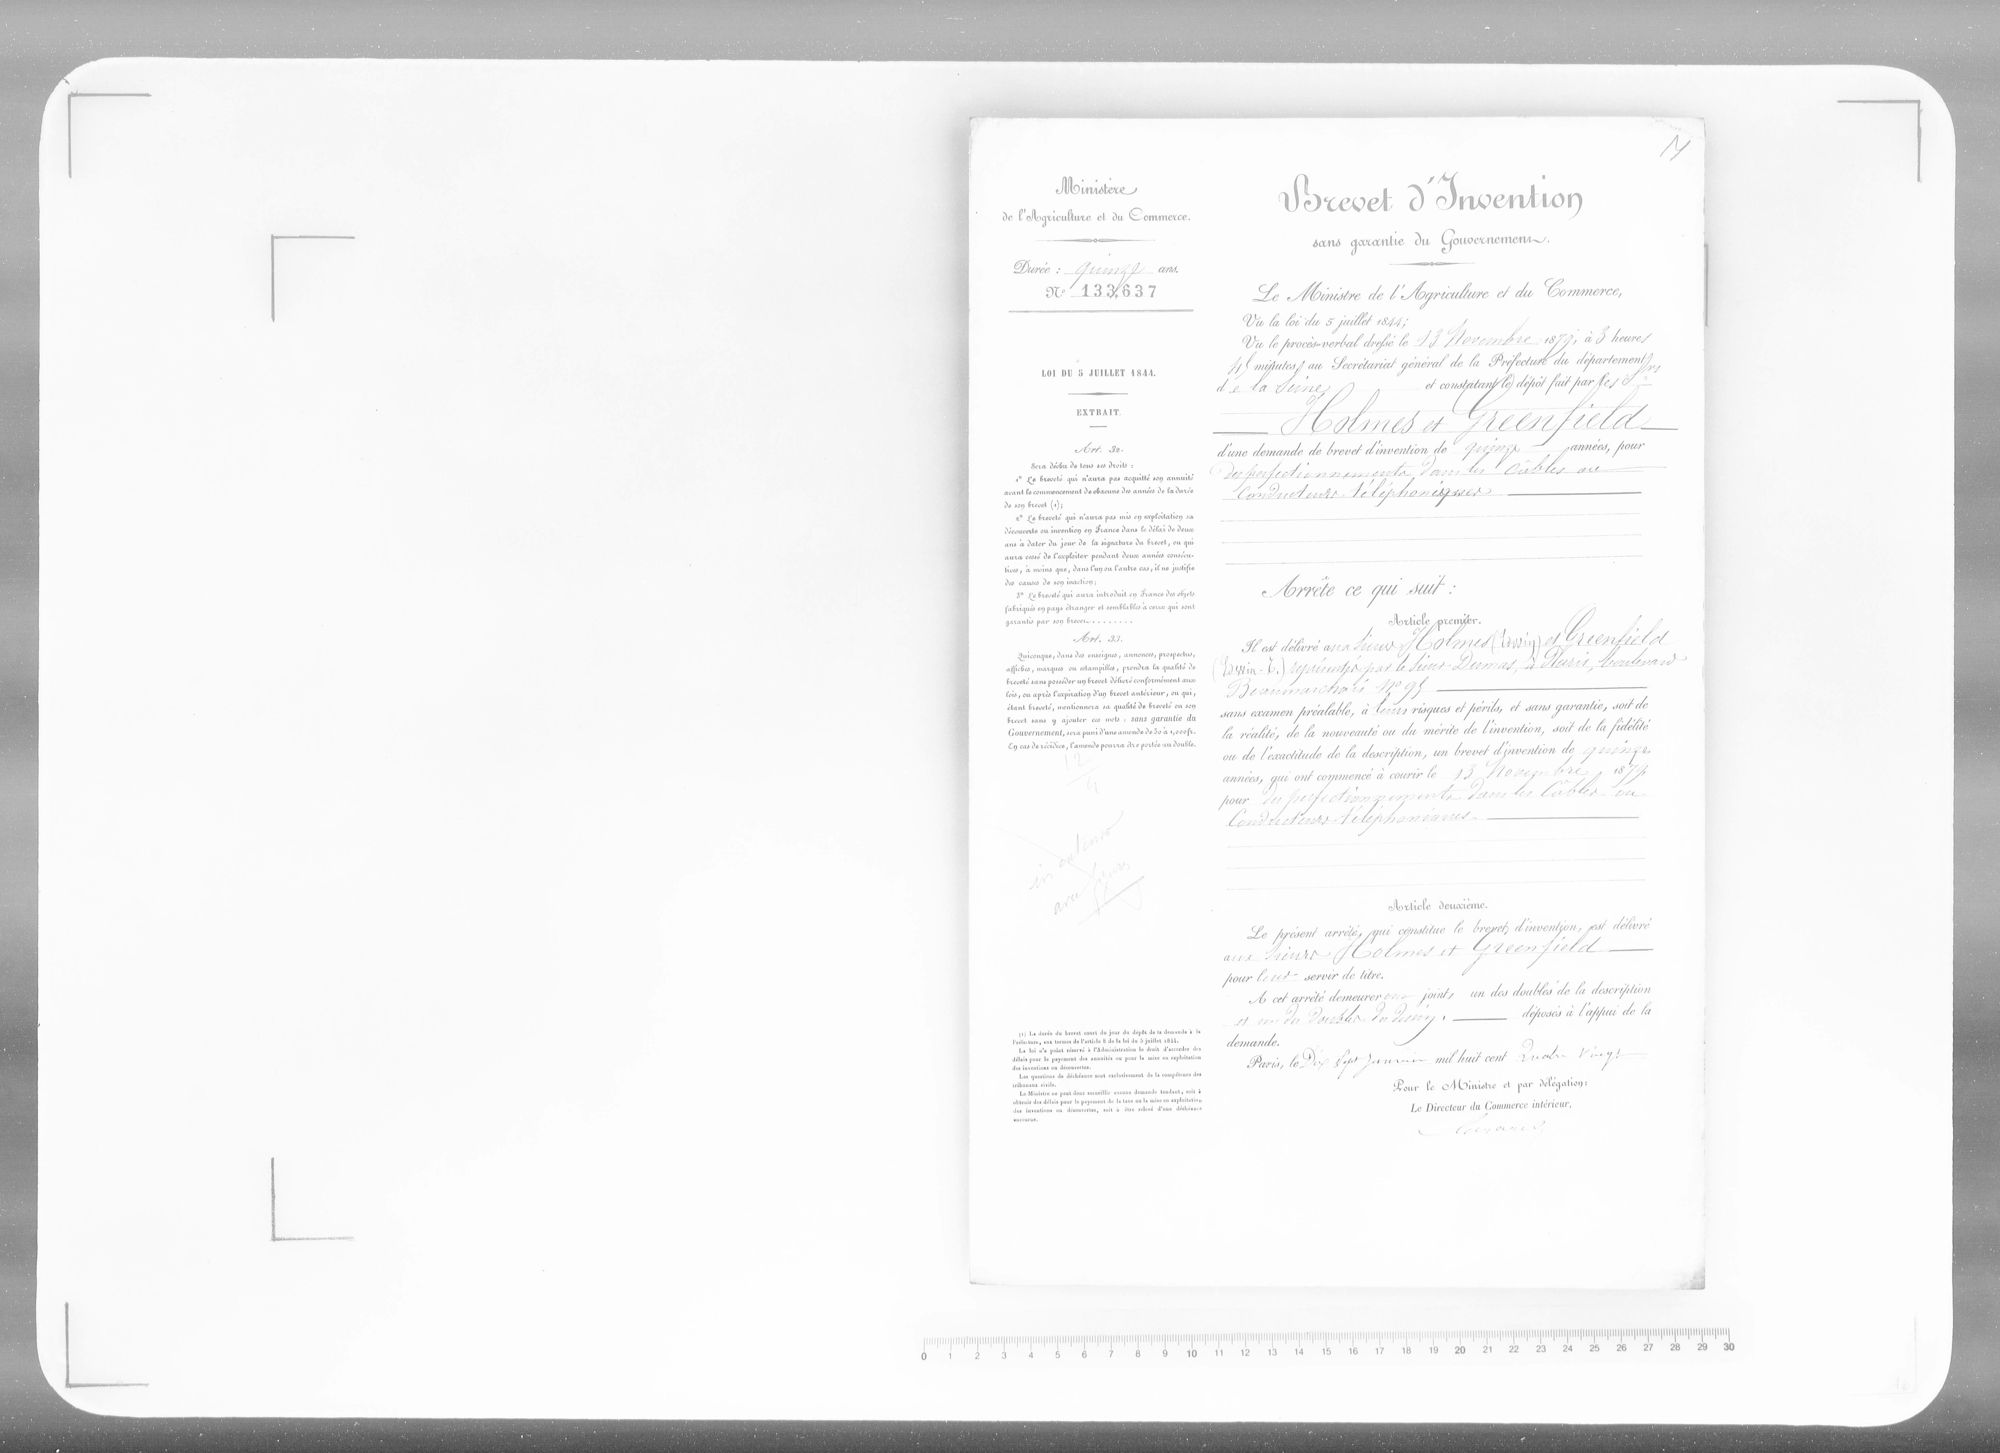 Ministère
de l'Agriculture et du Commerce.
Durée : quinze ans.
N° 133,637
LOI DU 5 JUILLET 1844.
EXTRAIT.
Art. 32.
Sera déchu de tous ses droits :
1° Le breveté qui n'aura pas acquitté son annuité
avant le commencement de chacune des années de la durée
de son brevet (1);
2° Le breveté qui n'aura pas mis en exploitation sa
découverte ou invention en France dans le délai de deux
ans à dater du jour de la signature du brevet, ou qui
aura cessé de l'exploiter pendant deux années consécu-
tives, à moins que, dans l'un ou l'autre cas, il ne justifie
des causes de son inaction;
3° Le breveté qui aura introduit en France des objets
fabriqués en pays étranger et semblables à ceux qui sont
garantis par son brevet........
Art. 33.
Quiconque, dans des enseignes, annonces, prospectus,
affiches, marques ou estampilles, prendra la qualité de
breveté sans posséder un brevet délivré conformément aux
lois, ou après l'expiration d'un brevet antérieur, ou qui,
étant breveté, mentionnera sa qualité de breveté ou son
brevet sans y ajouter ces mots : sans garantie du
Gouvernement, sera puni d'une amende de 50 à 1,000 fr.
En cas de récidive, l'amende pourra être portée au double.
12
4
in extenso
avec
(1) La durée du brevet court du jour du dépôt de la demande à la
Préfecture, aux termes de l'article 8 de la loi du 5 juillet 1844.
La loi n'a point réservé à l'Administration le droit d'accorder des
délais pour le payement des annuités ou pour la mise en exploitation
des inventions ou découvertes.
Les questions de déchéance sont exclusivement de la compétence des
tribunaux civils.
Le Ministre ne peut donc accueillir aucune demande tendant, soit à
obtenir des délais pour le payement de la taxe ou la mise en exploitation
des inventions ou découvertes, soit à être relevé d'une déchéance
encourue.
Brevet d'Invention
sans garantie du Gouvernement.
Le Ministre de l'Agriculture et du Commerce,
Vu la loi du 5 juillet 1844;
Vu le procès-verbal dressé le 13 Novembre 1879, à 3 heures
minutes, au Secrétariat général de la Préfecture du département
de la Seine et constatant le dépôt fait par les Srs
Holmes et Greenfield
d'une demande de brevet d'invention de quinze années, pour
des perfectionnements dans les Câbles ou
Conducteurs téléphoniques
Arrête ce qui suit :
Article premier.
Il est délivré aux Sieurs Holmes (Edwin) et Greenfield
(Edwin-T.) représentés par le Sieur Dumas, à Paris, boulevard
Beaumarchais N°
sans examen préalable, à leurs risques et périls, et sans garantie, soit de
la réalité, de la nouveauté ou du mérite de l'invention, soit de la fidélité
ou de l'exactitude de la description, un brevet d'invention de quinze
années, qui ont commencé à courir le 13 Novembre 1879
pour des perfectionnements dans les Câbles ou
Conducteurs téléphoniques.
Article deuxième.
Le présent arrêté, qui constitue le brevet d'invention, est délivré
aux Sieurs Holmes et Greenfield
pour leur servir de titre.
A cet arrêté demeureront joints un des doubles de la description
et un des doubles du dessin. déposés à l'appui de la
demande.
Paris, le Dix Sept Janvier mil huit cent Quatre Vingt
Pour le Ministre et par délégation:
Le Directeur du Commerce intérieur,
0 1 2 3 4 5 6 7 8 9 10 11 12 13 14 15 16 17 18 19 20 21 22 23 24 25 26 27 28 29 30